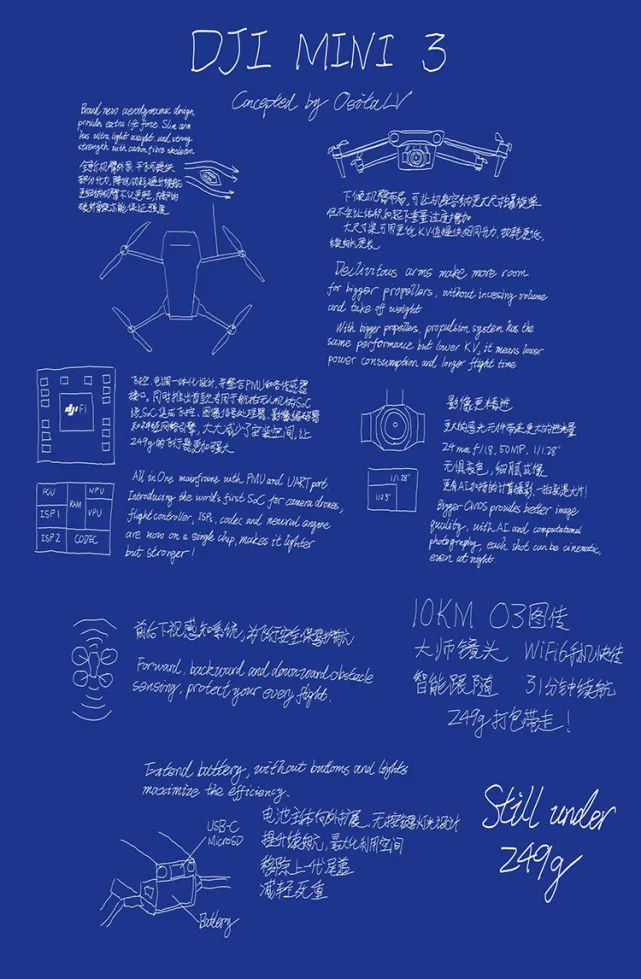 DJI MINI 3
Concepted by OsitaLV
Brand new aerodynamic design
provides extra life force Slim arm
has ultra light weight and strong
strength with carbon fibre skeleton
下倾机臂布局,可让机身容纳更大尺寸螺旋桨
但不会让体积和起飞重量过度增加
大尺寸桨可用更低KV值提供相同升力,功耗更低,
续航更长
Declivitous arms make more room
for bigger propellers, without incresing volume
and take off weight
With bigger propellers, propulsion system has the
same performance but lower KV, it means lower
power consumption and longer flight time
dji FI
飞控、电调一体化设计,并整合PMU和各传感器
接口,同时推出首款专用于航拍无人机的SoC
该SoC集成飞控、图像信号处理器、影像编码器
和神经网络引擎,大大减小了安装空间,让
249g的飞行器更加强大
FCU
NPU
ISP1
RAM
VPU
ISP2
CODEC
All in One mainframe with PMU and UART port
Introducing the world's first SoC for camera drones,
flight controller, ISPs, codec and neural engine
are now on a single chip, makes it lighter
but stronger!
影像更精进
更大的感光元件带来更大的进光量
24mm f/1.8, 50MP, 1/1.28"
无惧夜色,细腻成像
更有AI加持的计算摄影,一拍就是大片!
1/1.28"
1/2.3"
Bigger CMOS provides better image
quility, with AI and computational
photography, each shot can be cinematic,
even at night.
前后下视感知系统,为飞行安全保驾护航
Forward, backward and downward obstacle
sensing, protect your every flight.
10KM O3图传
大师镜头 WiFi6手机快传
智能跟随 31分钟续航
249g打包带走!
Extend battery, without buttons and lights
maximize the efficiency.
电池主体向外扩展,无按键灯光设计
提升续航,最大化利用空间
移除上一代尾盖
减轻死重
USB-C
MicroSD
Battery
Still under
249g